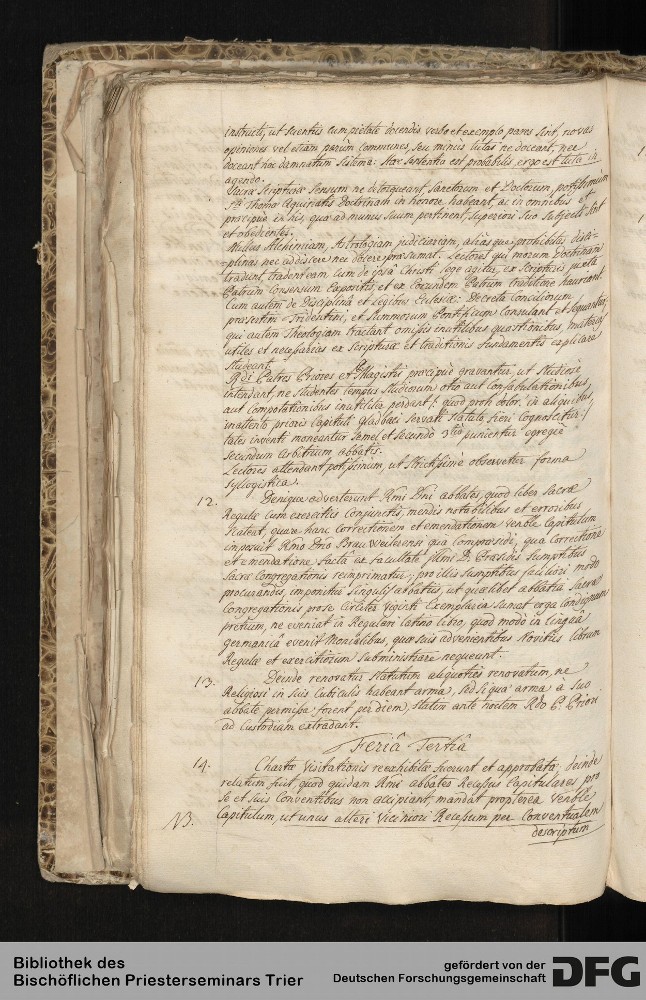 instructi, ut scientes cum pietate docendis verbo et exemplo pares sint, novas
opiniones vel etiam parum communes, seu minus tutas ne doceant, nec
doceant hoc damnatum sistema: Hæc sententia est probabilis, ergo est tuta in
agendo.
Sacræ Scripturæ sensum ne detorqueant, Sanctorum et Doctorum, potissimum
Sti Thomæ Aquinatis Doctrinam in honore habeant, ac in omnibus et
præcipuè in his, quæ ad munus suum pertinent, Superiori suo subjecti sint
et obedientes.
Nullus Alchimiam, Astrologiam judiciariam, aliasque prohibitas disci-
plinas nec addiscere nec docere præsumat. Lectores qui morum Doctrinam
tradunt, tradent eam cum de ipsâ Christi lege agitur, ex Scripturis juxta
Patrum consensum expositis, et ex eorundem Patrum traditione hauriant
Cum autem de Disciplinâ et legibus Ecclesiæ: Decreta Conciliorum
præsertim Tridentini, et Summorum Pontificum Consulant et sequantur,
qui autem Theologiam tractant omissis inutilibus quæstionibus, materias
utiles et necessarias ex Scripturæ et traditionis fundamentis explicare
studeant.
Rdi Patres Priores et Magistri præcipuè graventur, ut studiosè
intendant, ne studentes tempus studiorum otio aut confabulationibus,
aut Compotationibus inutiliter perdant /: quod proh dolor! in aliquibus,
inattento prioris Capituli Gladbaci servati statuto, fieri cognoscitur :/
tales inventi moneantur semel et secundo 3tiò punientur egregiè
secundum arbitrium abbatis.
Lectores attendant potissimum, ut strictissimè observetur forma
syllogistica.
12. Denique adverterunt Rmi Dni abbates, quod liber Sacræ
Regulæ cum exercitiis conjunctis, mendis notabilibus et erroribus
scateat, quare hanc correctionem et emendationem venble Capitulum
imposuit Rmo Dno Brauweilerensi quâ compræsidi, quâ correctione
et emendatione factâ ex facultate Illmi D. Præsidis sumptibus
Sacræ Congregationis reimprimatur; pro illis sumptibus faciliori modo
procurandis, imponitur singulis abbatiis, ut quælibet abbatia Sacræ
Congregationis prose circiter viginti Exemplaria sumat erga condignum
pretium, ne eveniat in Regulari latino libro, quod modo in linguâ
germanicâ evenit Monialibus, quæ suis advenientibus Novitiis librum
Regulæ et exercitiorum subministrare nequeunt.
13. Deinde renovatur statutum aliquoties renovatum, ne
Religiosi in suis Cubiculis habeant arma, sed si qua arma à suo
abbate permissa forent per diem, statim ante noctem Rdo P. Priori
ad Custodiam extradant.
Feriâ Tertiâ
14. Chartæ visitationis reexhibitæ fuerunt et approbatæ; deinde
relatum fuit, quod quidam Rmi abbates Recessus Capitulares pro
se et suis Conventibus non accipiant, mandat propterea venble
NB. Capitulum, ut unus alteri viciniori Recessum per Conventualem
descriptum
Bibliothek des
Bischöflichen Priesterseminars Trier
gefördert von der
Deutschen Forschungsgemeinschaft
DFG